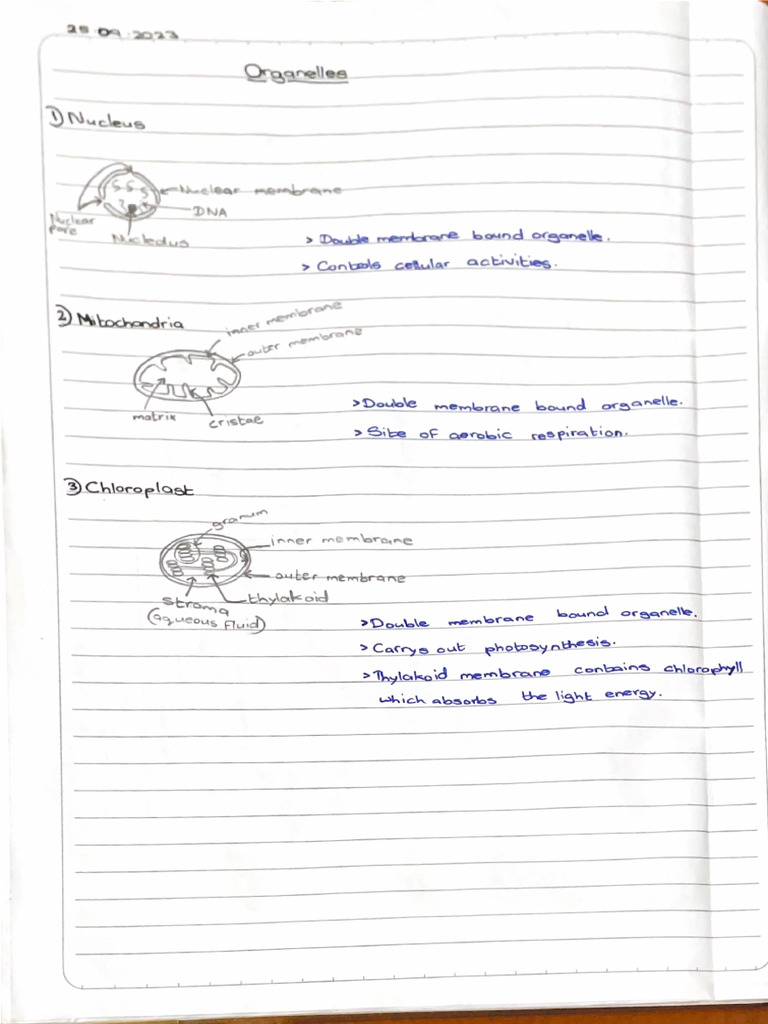 25.09.2023
Organelles
1) Nucleus
Nuclear membrane
DNA
Nuclear
pore
Nucleolus
> Double membrane bound organelle.
> Controls cellular activities.
2) Mitochondria
inner membrane
outer membrane
matrix
cristae
> Double membrane bound organelle.
> Site of aerobic respiration.
3) Chloroplast
granum
inner membrane
outer membrane
thylakoid
stroma
(aqueous fluid)
> Double membrane bound organelle.
> Carrys out photosynthesis.
> Thylakoid membrane contains chlorophyll
which absorbs the light energy.